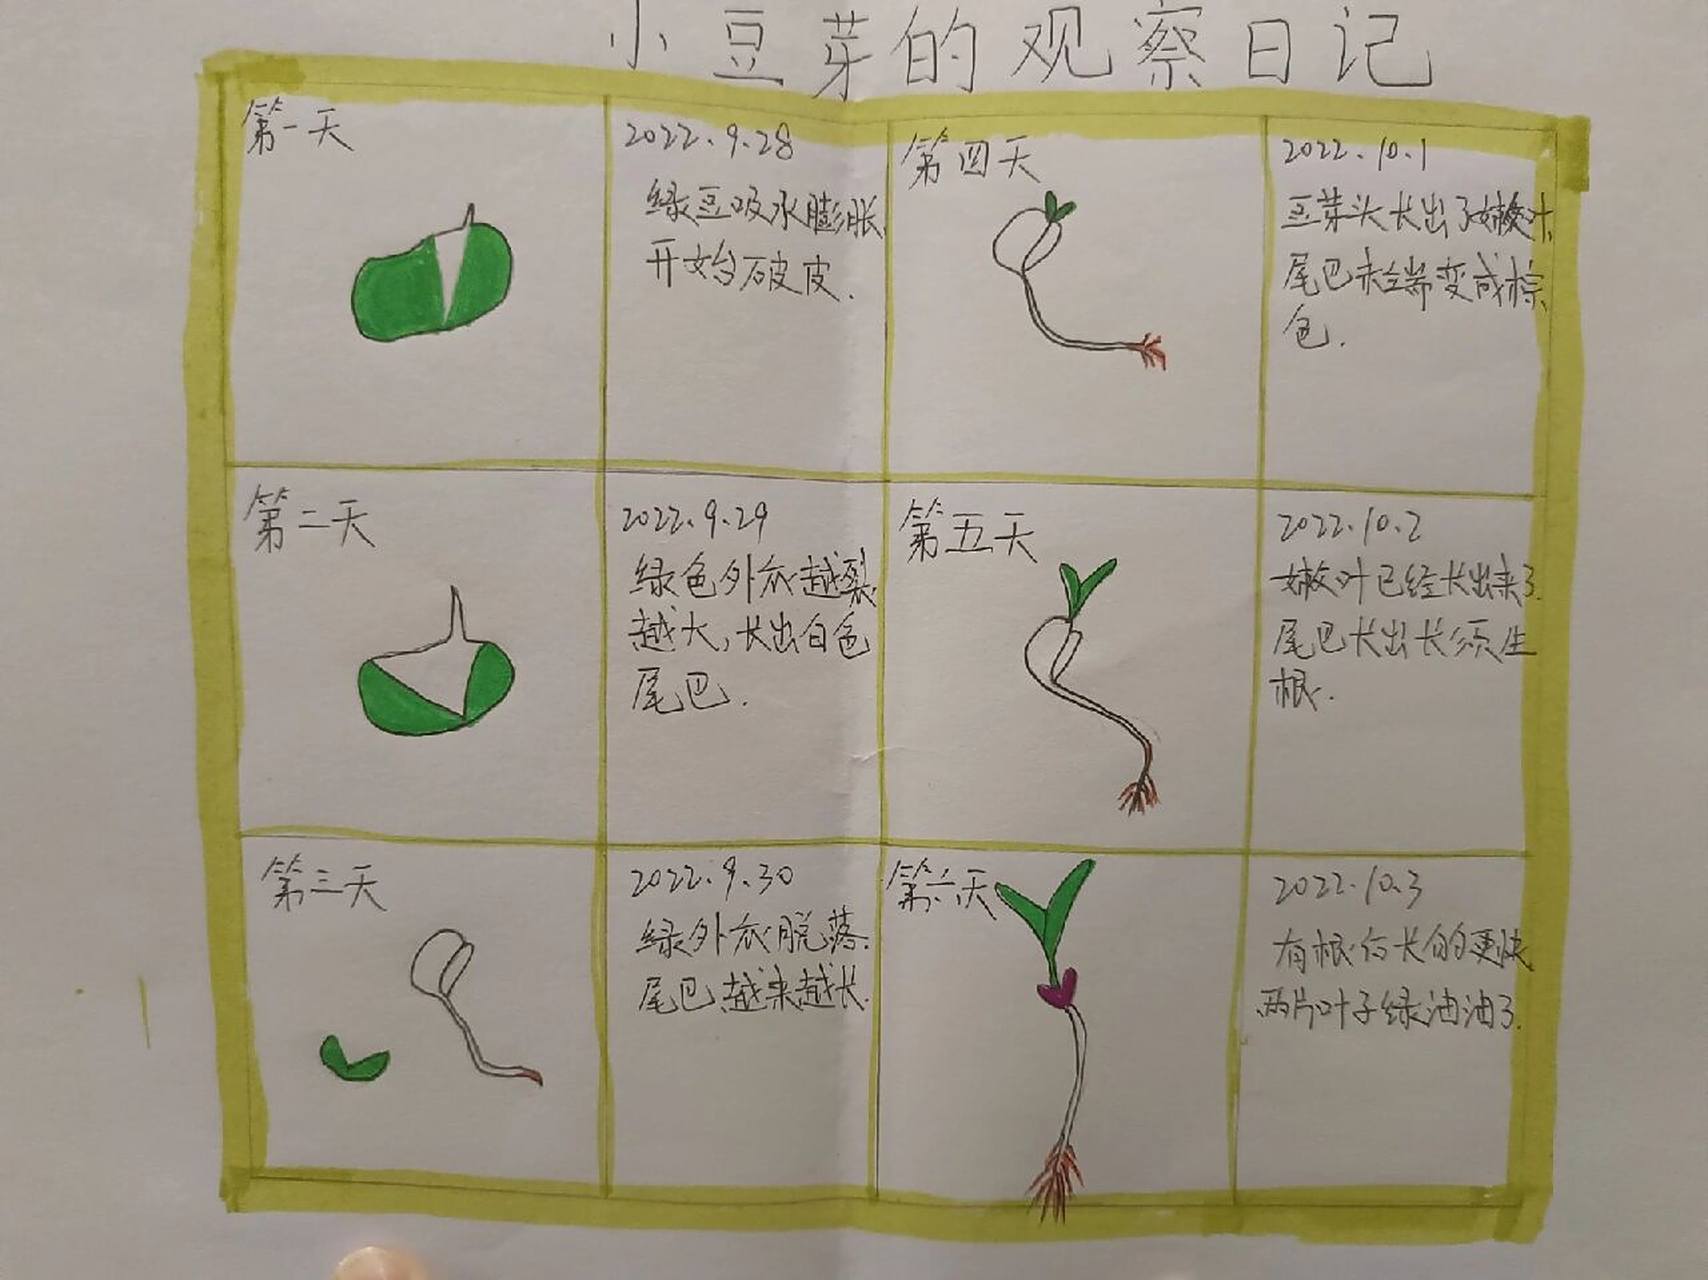 小豆芽的观察日记
第一天
2022.9.28
绿豆吸水膨胀,
开始破皮.
第二天
2022.9.29
绿色外衣越裂
越大,长出白色
尾巴.
第三天
2022.9.30
绿外衣脱落.
尾巴越来越长.
第四天
2022.10.1
豆芽头长出了嫩叶,
尾巴末端变成棕
色.
第五天
2022.10.2
嫩叶已经长出来了.
尾巴长出长须生
根.
第六天
2022.10.3
有根后长的更快,
两片叶子绿油油了.